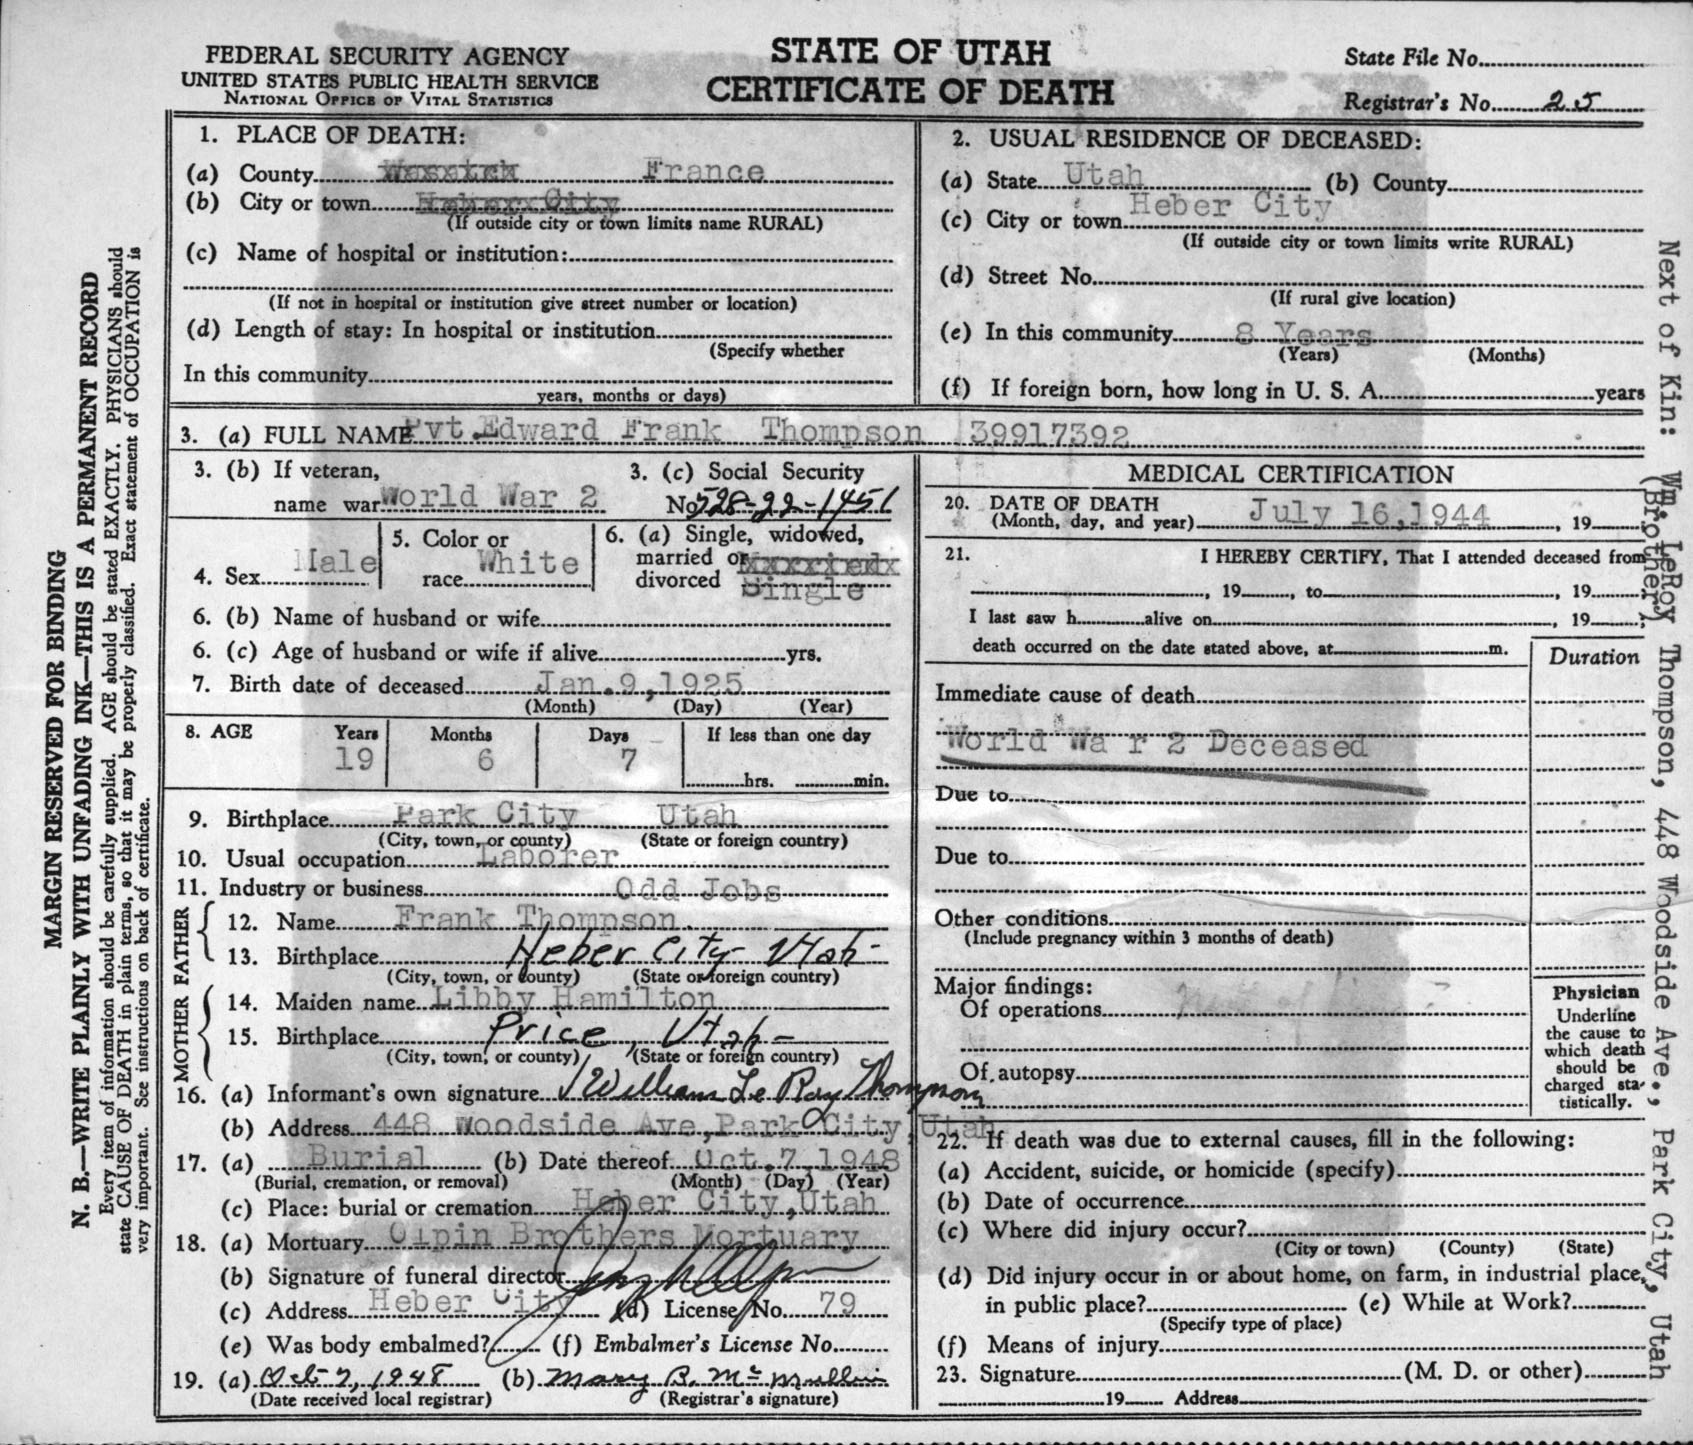 FEDERAL SECURITY AGENCY
UNITED STATES PUBLIC HEALTH SERVICE
NATIONAL OFFICE OF VITAL STATISTICS
STATE OF UTAH
CERTIFICATE OF DEATH
State File No.
Registrar's No. 25
1. PLACE OF DEATH:
(a) County Wasatch France
(b) City or town Heber City
(If outside city or town limits name RURAL)
(c) Name of hospital or institution:
(If not in hospital or institution give street number or location)
(d) Length of stay: In hospital or institution
(Specify whether
In this community
years, months or days)
2. USUAL RESIDENCE OF DECEASED:
(a) State Utah (b) County
(c) City or town Heber City
(If outside city or town limits write RURAL)
(d) Street No.
(If rural give location)
(e) In this community 8 Years
(Years) (Months)
(f) If foreign born, how long in U. S. A. years
3. (a) FULL NAME Pvt.Edward Frank Thompson 39917392
3. (b) If veteran,
name war World War 2
3. (c) Social Security
No. 528-22-1451
4. Sex Male
5. Color or
race White
6. (a) Single, widowed,
married or
divorced Single
6. (b) Name of husband or wife
6. (c) Age of husband or wife if alive yrs.
7. Birth date of deceased Jan.9,1925
(Month) (Day) (Year)
8. AGE Years Months Days If less than one day
19 6 7 hrs. min.
9. Birthplace Park City Utah
(City, town, or county) (State or foreign country)
10. Usual occupation Laborer
11. Industry or business Odd Jobs
FATHER
12. Name Frank Thompson.
13. Birthplace Heber City Utah-
(City, town, or county) (State or foreign country)
MOTHER
14. Maiden name Libby Hamilton
15. Birthplace Price, Utah-
(City, town, or county) (State or foreign country)
16. (a) Informant's own signature William Le Roy Thompson
(b) Address 448 Woodside Ave,Park City,Utah
17. (a) Burial (b) Date thereof Oct.7,1948
(Burial, cremation, or removal) (Month) (Day) (Year)
(c) Place: burial or cremation Heber City,Utah
18. (a) Mortuary Olpin Brothers Mortuary
(b) Signature of funeral director
(c) Address Heber City (d) License No. 79
(e) Was body embalmed? (f) Embalmer's License No.
19. (a) Oct 7, 1948 (b) Mary B. McMullin
(Date received local registrar) (Registrar's signature)
MEDICAL CERTIFICATION
20. DATE OF DEATH
(Month, day, and year) July 16,1944, 19
21. I HEREBY CERTIFY, That I attended deceased from
, 19, to , 19
I last saw h alive on , 19;
death occurred on the date stated above, at m.
Duration
Immediate cause of death
World Wa r 2 Deceased
Due to
Due to
Other conditions
(Include pregnancy within 3 months of death)
Major findings:
Of operations
Of autopsy
Physician
Underline
the cause to
which death
should be
charged sta-
tistically.
22. If death was due to external causes, fill in the following:
(a) Accident, suicide, or homicide (specify)
(b) Date of occurrence
(c) Where did injury occur?
(City or town) (County) (State)
(d) Did injury occur in or about home, on farm, in industrial place,
in public place? (e) While at Work?
(Specify type of place)
(f) Means of injury
23. Signature (M. D. or other)
19 Address
MARGIN RESERVED FOR BINDING
N. B.—WRITE PLAINLY WITH UNFADING INK—THIS IS A PERMANENT RECORD
Every item of information should be carefully supplied. AGE should be stated EXACTLY. PHYSICIANS should
state CAUSE OF DEATH in plain terms, so that it may be properly classified. Exact statement of OCCUPATION is
very important. See instructions on back of certificate.
Next of Kin: Wm. LeRoy Thompson, 448 Woodside Ave., Park City, Utah
(Brother)